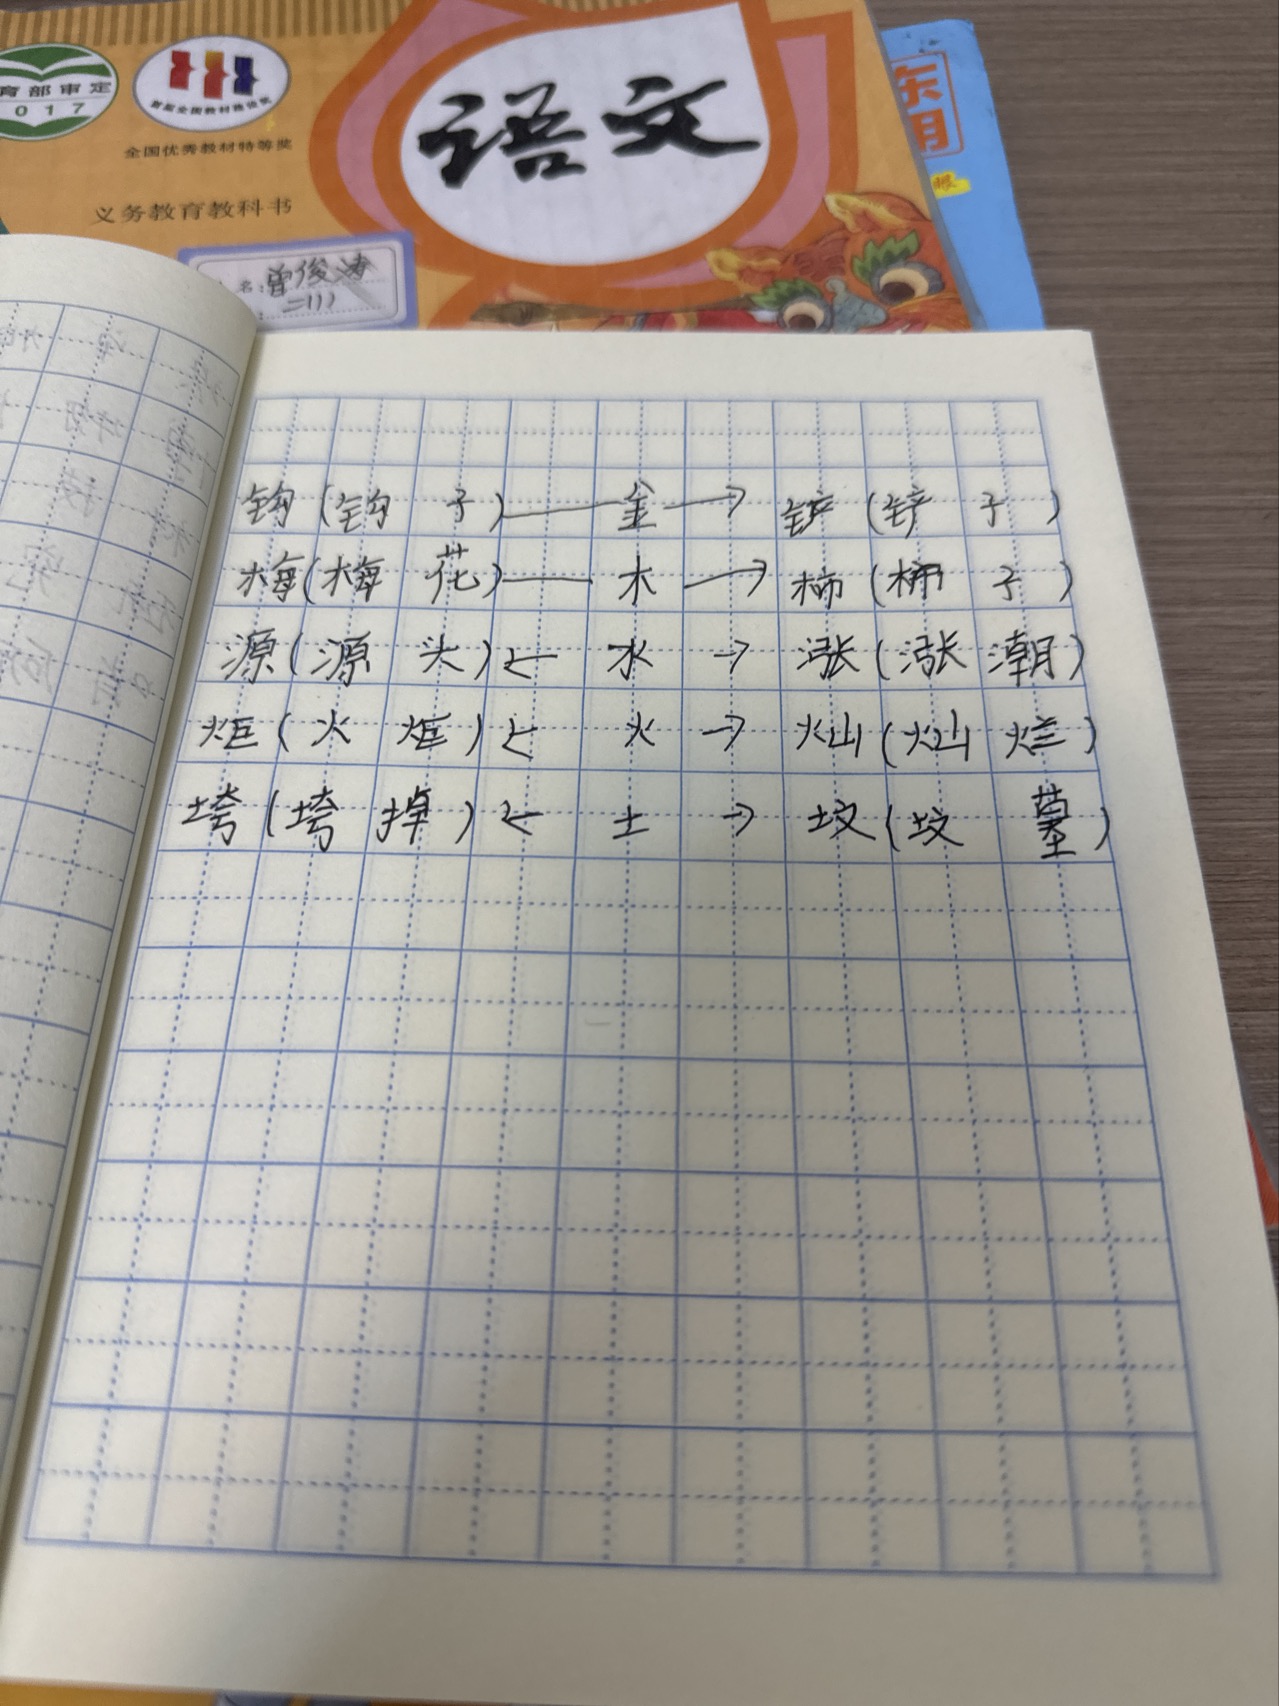 育部审定
017
首届全国教材建设奖
全国优秀教材特等奖
义务教育教科书
语文
名：曾俊涛
二(1)
钩(钩子)——金→铲(铲子)
梅(梅花)——木→柿(柿子)
源(源头)←水→涨(涨潮)
炬(火炬)←火→灿(灿烂)
垮(垮掉)←土→坟(坟墓)